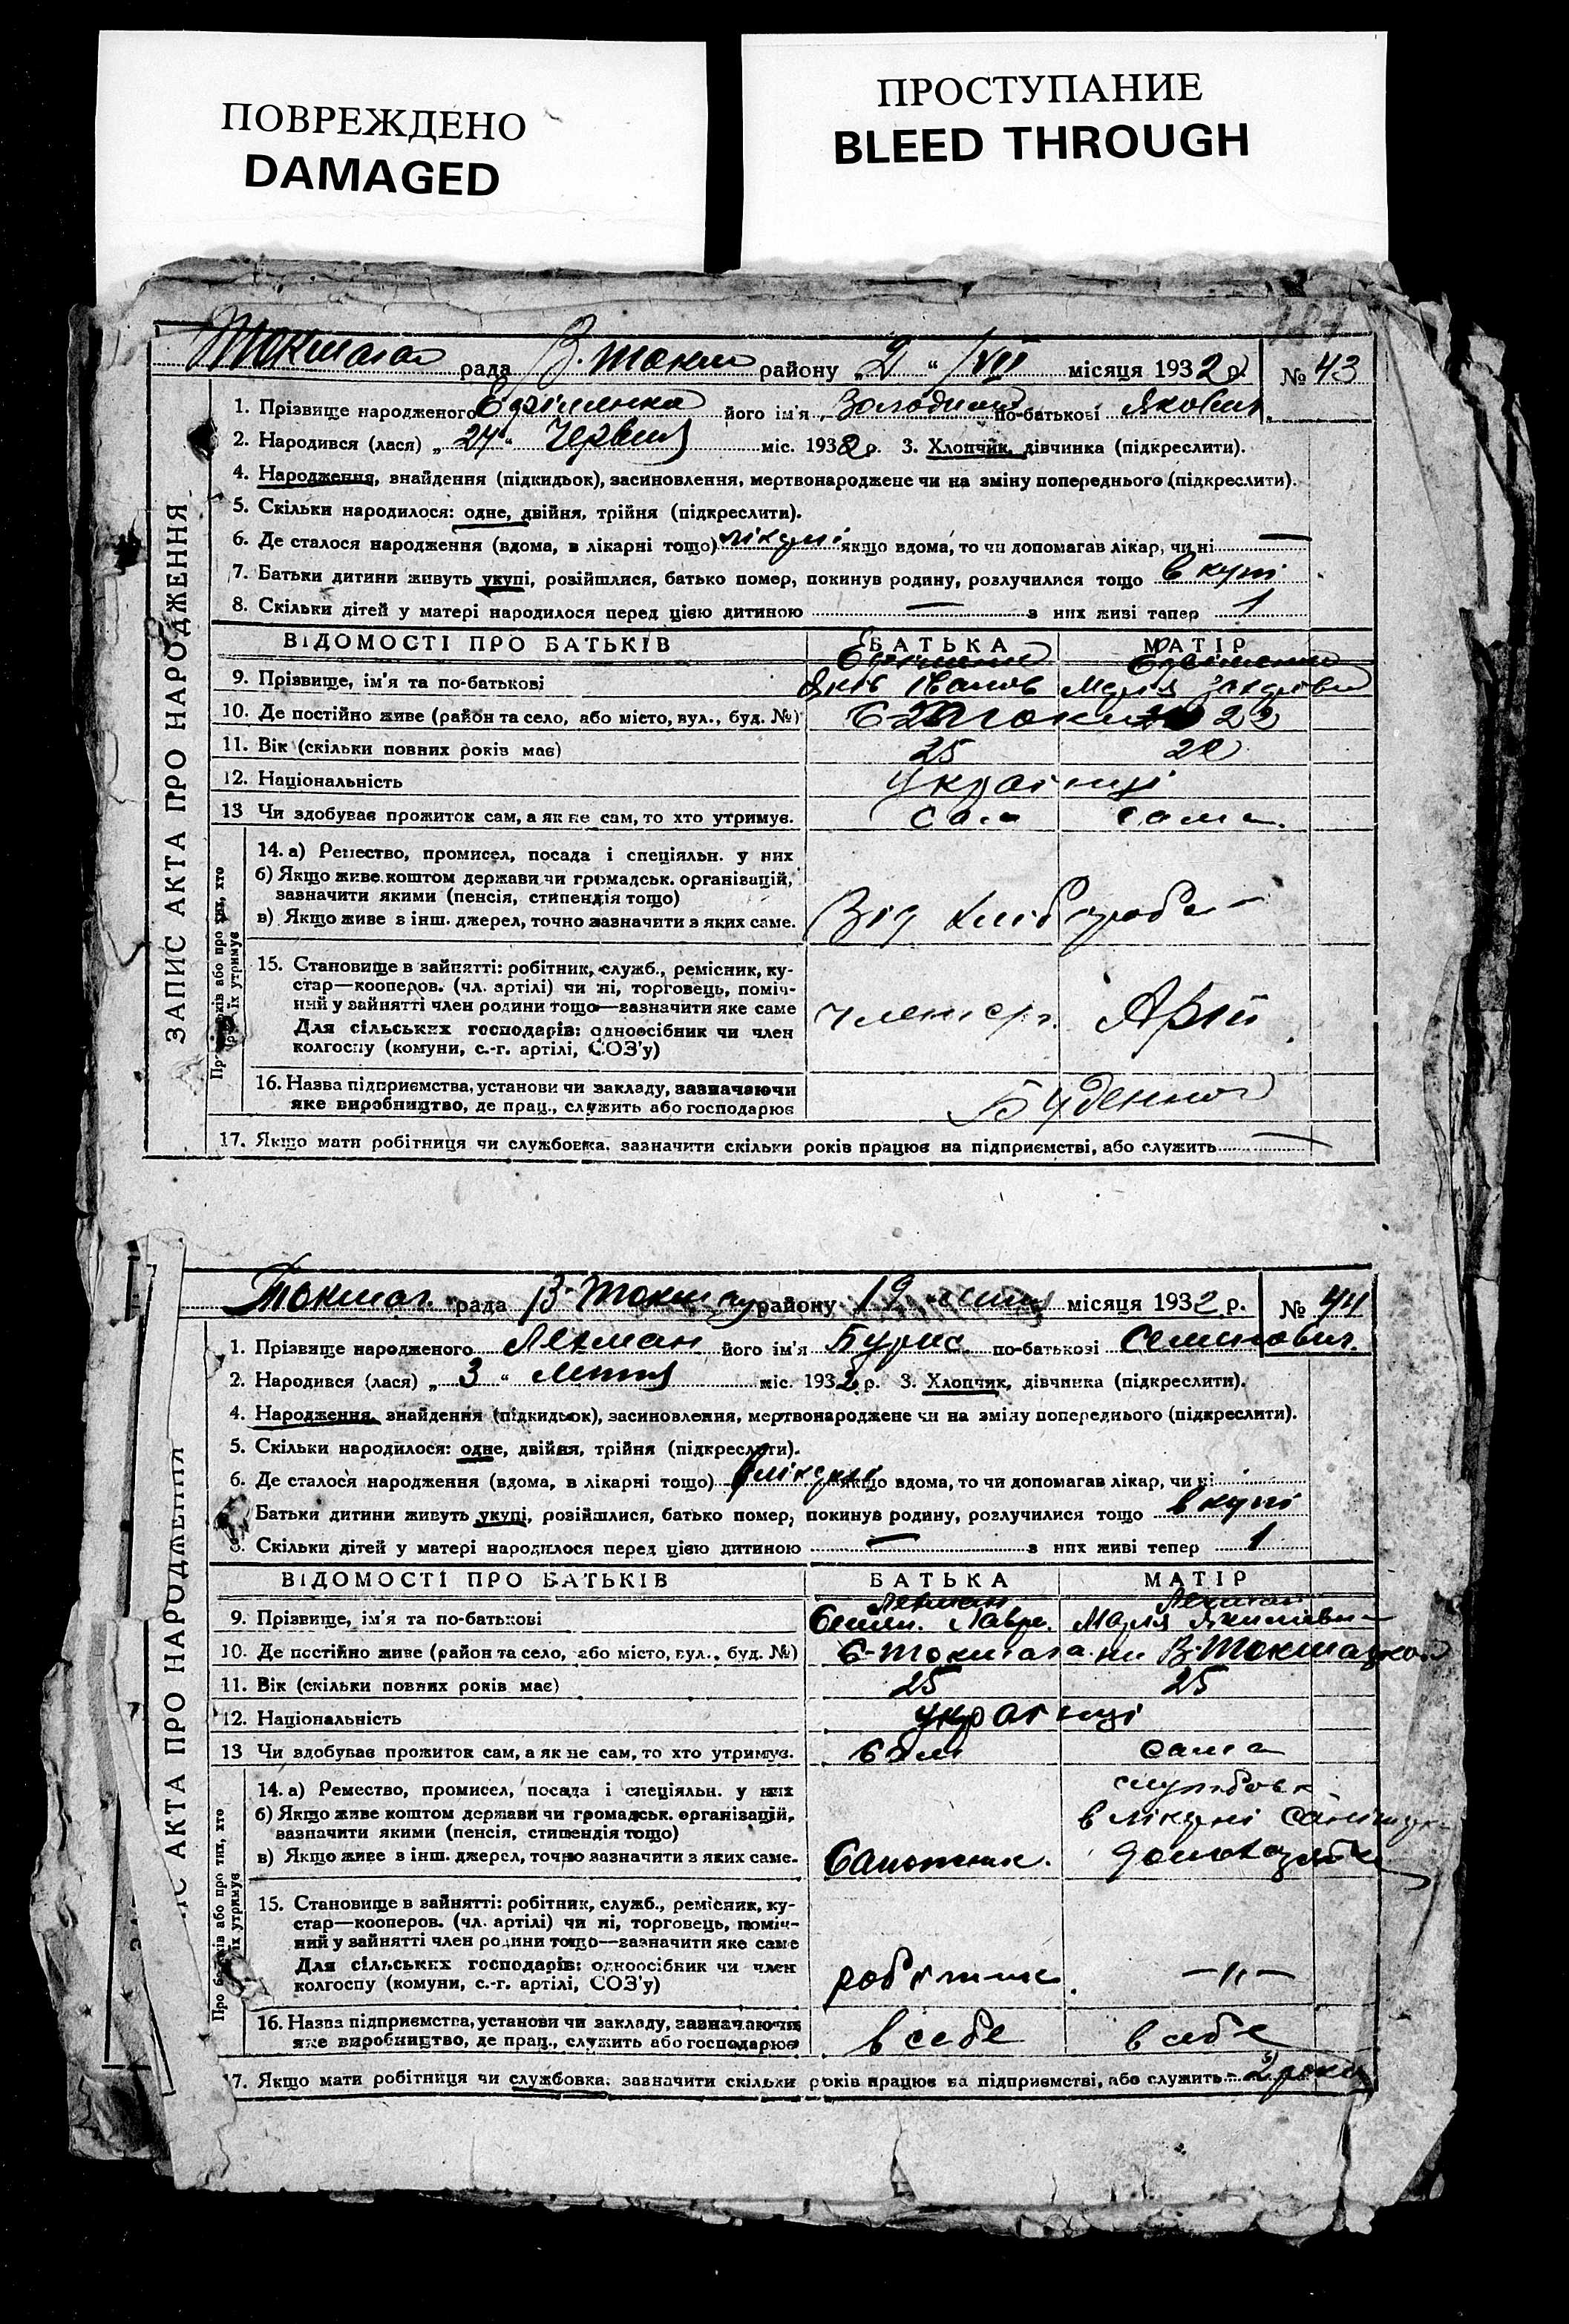 ПОВРЕЖДЕНО
DAMAGED
ПРОСТУПАНИЕ
BLEED THROUGH
рада В. Токм району „2“ /VII місяця 1932 р. № 43
ЗАПИС АКТА ПРО НАРОДЖЕННЯ
1. Прізвище народженого його ім'я Володимир по-батькові Якович
2. Народився (лася) „24“ Червня міс. 1932 р. 3. Хлопчик, дівчинка (підкреслити).
4. Народження, знайдення (підкидьок), засиновлення, мертвонароджене чи на зміну попереднього (підкреслити).
5. Скільки народилося: одне, двійня, трійня (підкреслити).
6. Де сталося народження (вдома, в лікарні тощо) лікарні якщо вдома, то чи допомагав лікар, чи ні —
7. Батьки дитини живуть укупі, розійшлися, батько помер, покинув родину, розлучилися тощо вкупі
8. Скільки дітей у матері народилося перед цією дитиною — з них живі тепер 1
ВІДОМОСТІ ПРО БАТЬКІВ БАТЬКА МАТІР
9. Прізвище, ім'я та по-батькові Яків Іванов Марія
10. Де постійно живе (район та село, або місто, вул., буд. №)
11. Вік (скільки повних років має) 25 22
12. Національність українці
13 Чи здобував прожиток сам, а як не сам, то хто утримує. Сам сама.
Про батьків або про тих, хто їх утримує
14. а) Ремество, промисел, посада і спеціяльн. у них
б) Якщо живе коштом держави чи громадськ. організацій,
зазначити якими (пенсія, стипендія тощо)
в) Якщо живе з інш. джерел, точно зазначити з яких саме. Від хліборобс—
15. Становище в зайнятті: робітник, служб., ремісник, ку-
стар—кооперов. (чл. артілі) чи ні, торговець, поміч-
ний у зайнятті член родини тощо—зазначити яке саме
Для сільських господарів: одноосібник чи член
колгоспу (комуни, с.-г. артілі, СОЗ'у) член Артіл
16. Назва підприємства, установи чи закладу, зазначаючи
яке виробництво, де прац., служить або господарює Буденного
17. Якщо мати робітниця чи службовка, зазначити скільки років працює на підприємстві, або служить —
Токмаг. рада В-Токмац району 19 місяця 1932 р. № 44
ЗАПИС АКТА ПРО НАРОДЖЕННЯ
1. Прізвище народженого Лехман його ім'я Бурис по-батькові Семинович.
2. Народився (лася) „3“ міс. 1932 р. 3. Хлопчик, дівчинка (підкреслити).
4. Народження, знайдення (підкидьок), засиновлення, мертвонароджене чи на зміну попереднього (підкреслити).
5. Скільки народилося: одне, двійня, трійня (підкреслити).
6. Де сталося народження (вдома, в лікарні тощо) в лікарні якщо вдома, то чи допомагав лікар, чи ні
Батьки дитини живуть укупі, розійшлися, батько помер, покинув родину, розлучилися тощо вкупі
8. Скільки дітей у матері народилося перед цією дитиною — з них живі тепер 1
ВІДОМОСТІ ПРО БАТЬКІВ БАТЬКА МАТІР
Лехман Лехман
9. Прізвище, ім'я та по-батькові Семен. Лавре. Марія Якимівна
10. Де постійно живе (район та село, або місто, вул., буд. №)
11. Вік (скільки повних років має) 25 25
12. Національність українці
13 Чи здобував прожиток сам, а як не сам, то хто утримує. сам сама
Про батьків або про тих, хто їх утримує
14. а) Ремество, промисел, посада і спеціяльн. у них
б) Якщо живе коштом держави чи громадськ. організацій,
зазначити якими (пенсія, стипендія тощо) в лікарні
в) Якщо живе з інш. джерел, точно зазначити з яких саме. Сапожник.
15. Становище в зайнятті: робітник, служб., ремісник, ку-
стар—кооперов. (чл. артілі) чи ні, торговець, поміч-
ний у зайнятті член родини тощо—зазначити яке саме
Для сільських господарів: одноосібник чи член
колгоспу (комуни, с.-г. артілі, СОЗ'у) робітник —"—
16. Назва підприємства, установи чи закладу, зазначаючи
яке виробництво, де прац., служить або господарює в себе в себе
17. Якщо мати робітниця чи службовка, зазначити скільки років працює на підприємстві, або служить 2 роки